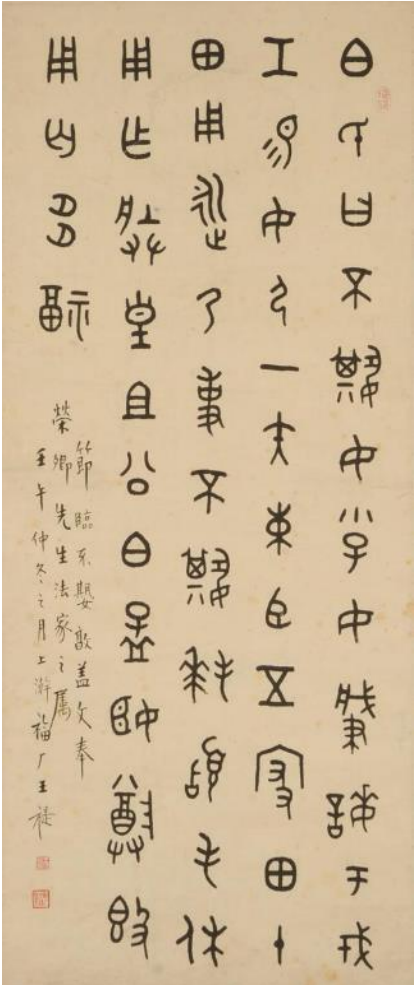 白氏曰不𡢁女小子女肇誨于戎
工易女弓一矢束臣五家田十
田用永乃事不𡢁拜稽手休
用乍朕皇且公白孟姬尊簋
用匄多福
節臨不𡢁敦蓋文奉
榮卿先生法家之屬
壬午仲冬之月上澣福厂王禔